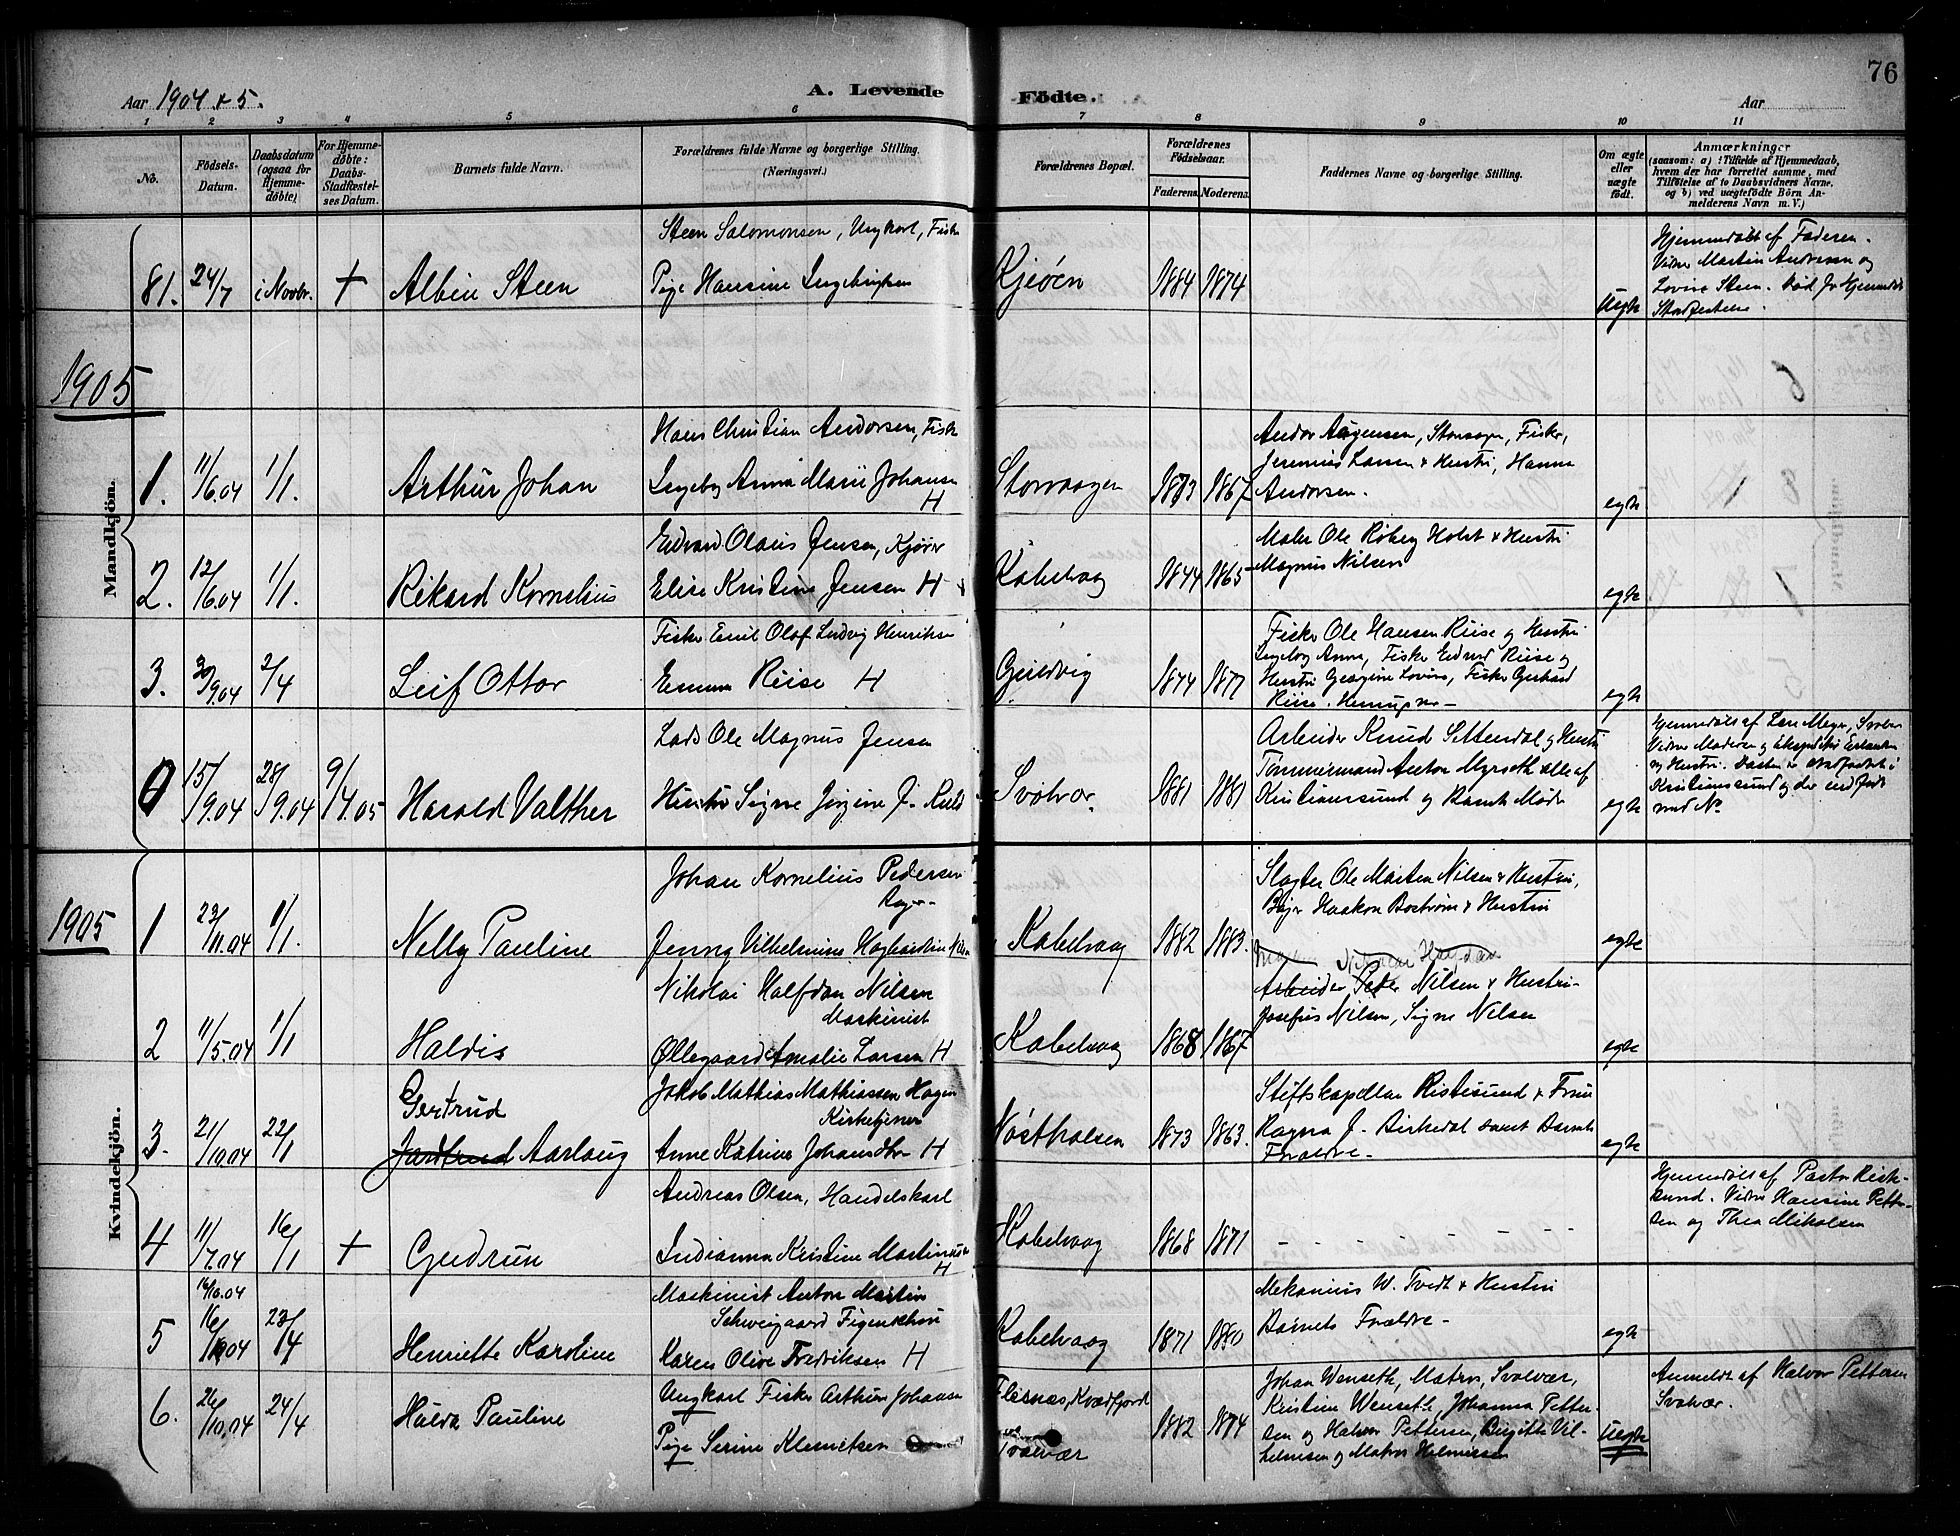 76
Aar 1904 & 5.
A. Levende Fødte.
Aar
1 2 3 4 5 6 7 8 9 10 11
No.
Fødsels-Datum.
Daabsdatum (ogsaa for Hjemme-døbte)
For Hjemme-døbte: Daabs-Stadfæstel-ses Datum.
Barnets fulde Navn.
Forældrenes fulde Navne og borgerlige Stilling.
(Næringsvei.)
Forældrenes Bopæl.
Forældrenes Fødselsaar.
Faderens Moderens
Faddernes Navne og borgerlige Stilling.
Om ægte eller uægte født.
Anmærkninger
(saasom: a) i Tilfælde af Hjemmedaab,
hvem der har forrettet samme, med
Tilføielse af to Daabsvidners Navne,
og b) ved uægtefødte Børn An-
melderens Navn m. V.)
Steen Salomonsen, Ungkarl, Fisker
81. 24/7 i Novbr. + Albin Steen
Pige Hansine Ingebrigtsen
Kjeøen 1884 1874
Uegte
Hjemmedøbt af Faderen.
Vidner Martin Andresen og
Lovise Steen. Død før Hjemmedåb
Stadfæstelse.
1905
Mandkjön.
Hans Christian Andorsen, Fisker
1. 11/6.04 1/1. Arthur Johan
Ingebg Anna Marie Johansen H
Storvaagen 1873 1867
Andor Aagensen, Storvagn, Fisker,
Jeremius Larsen & Hustru, Hanna
Andorsen.
egte
Edvard Olaus Jensen, Kjører
2. 12/6.04 1/1. Rikard Kornelius
Elise Kristine Jensen H
Kabelvaag 1844 1865
Maler Ole Roberg Holst & Hustru
Magnus Nilsen
egte
Fisker Emil Olaf Ludvig Henriksen
3. 30/9.04 2/4 Leif Ottar
Emma Riise H
Gjeldvig 1874 1877
Fisker Ole Hansen Riise og Hustru
Ingebog Anna, Fisker Edvard Riise og
Hustru Georgine Lovise, Fisker Gerhard
Riise. Henningsv-
egte
Lods Ole Magnus Jensen
0 15/9.04 28/9.04 9/4.05 Harald Valther
Hustru Signe Jørgine J. Ruld
Svolvær 1881 1881
Arbeider Knud Settendal og Hustru
Tømmermand Anton Myrseth alle af
Kristianssund og Barnets Moder
egte
Hjemmedøbt af Lars Meyer, Svolvær
Vidner Moderen og Ekspeditør
og Hustru. Daaben er stadfæstet i
Kristianssund og der indført
med No
1905
Kvindekjön.
Johan Kornelius Pedersen
Bager-
1 23/11.04 1/1. Nelly Pauline
Jenny Vilhelmine Hagbartine Nilsen
Kabelvaag 1882 1883.
Slagter Ole Martin Nilsen & Hustru,
Bager Haakon Bostrøm & Hustru
egte
Nikolai Halfdan Nilsen
Maskinist
2 11/5.04 1/1 Haldis
Øllegaard Amalie Larsen H
Kabelvaag 1868 1867
Arbeider Peder Nilsen & Hustru-
Josefus Nilsen, Signe Nilsen
egte
Gertrud
Jakob Mathias Mathiassen Hagen
Kirketjener
3. 21/10.04 22/1 Jartrud Aarlaug
Anne Katrine Johansdtr H
Vøstholsen 1873 1863.
Stiftskapellan Ristesund & Frue
Ragna J. Birkedal samt Barnets
Foreldre-
egte
Andreas Olsen, Handelskarl
4 11/7.04 16/1 + Gudrun
Indianna Kristine Martinussen H
Kabelvaag 1868 1871
- - - - - -
Hjemmedøbt af Pastor Riste-
sund. Vidner Hansine Petter-
sen og Thea Mikalsen
16/10.04
Maskinist Anton Martin
Schweigaard Figenschou
5 16/10.04 23/4 Henriette Karoline
Karen Olive Fredriksen H
Kabelvaag 1871 1880
Mekanikus W. Tvedt & Hustru
Barnets Forældre-
egte
6. 26/10.04 24/4 Hulda Pauline
Ungkarl Fisker Arthur Johansen
Pige Serine Klemetsen
Flesnæs, Kvædfjord
Svolvær
1882 1874
Johan Wenseth, Matros, Svolvær,
Kristine Wenseth, Johanna Petter-
sen og Halvor Pettersen, Birgitte Vil-
helmsen og Matros Helmersen
Uegte
Anmeldt af Halvor Pettersen
Svolvær.